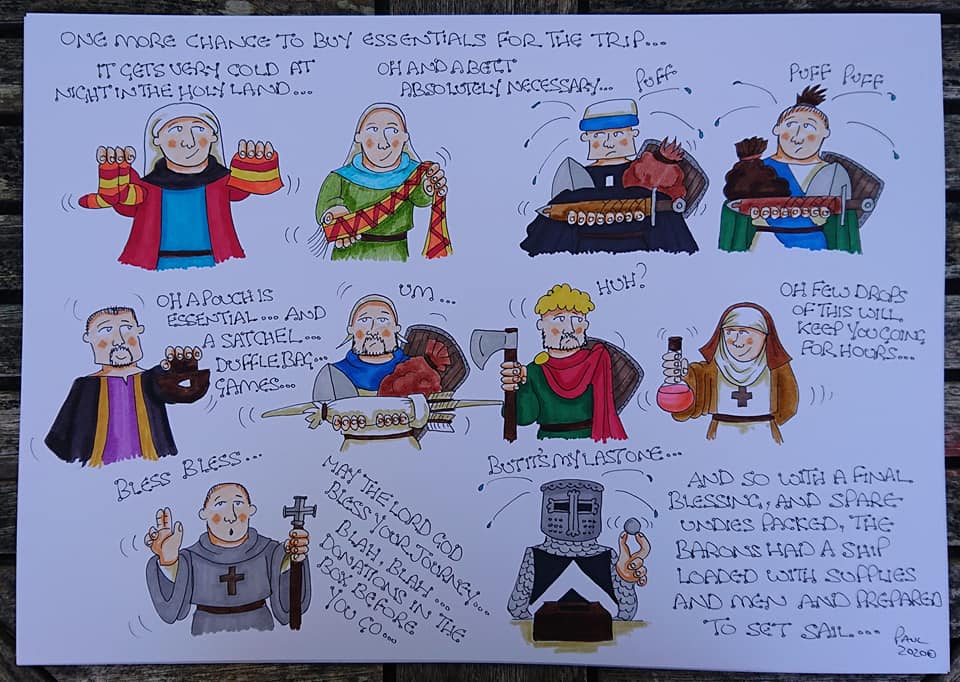 ONE MORE CHANCE TO BUY ESSENTIALS FOR THE TRIP...
IT GETS VERY COLD AT
NIGHT IN THE HOLY LAND...
OH AND A BELT
ABSOLUTELY NECESSARY...
PUFF
PUFF PUFF
OH A POUCH IS
ESSENTIAL... AND
A SATCHEL...
DUFFLE BAG...
GAMES...
UM...
HUH?
OH FEW DROPS
OF THIS WILL
KEEP YOU GOING
FOR HOURS...
BLESS BLESS...
MAY THE LORD GOD
BLESS YOUR JOURNEY...
BLAH, BLAH...
DONATIONS IN THE
BOX BEFORE
YOU GO...
BUT IT'S MY LAST ONE...
AND SO WITH A FINAL
BLESSING, AND SPARE
UNDIES PACKED, THE
BARONS HAD A SHIP
LOADED WITH SUPPLIES
AND MEN AND PREPARED
TO SET SAIL...
PAUL
2020©